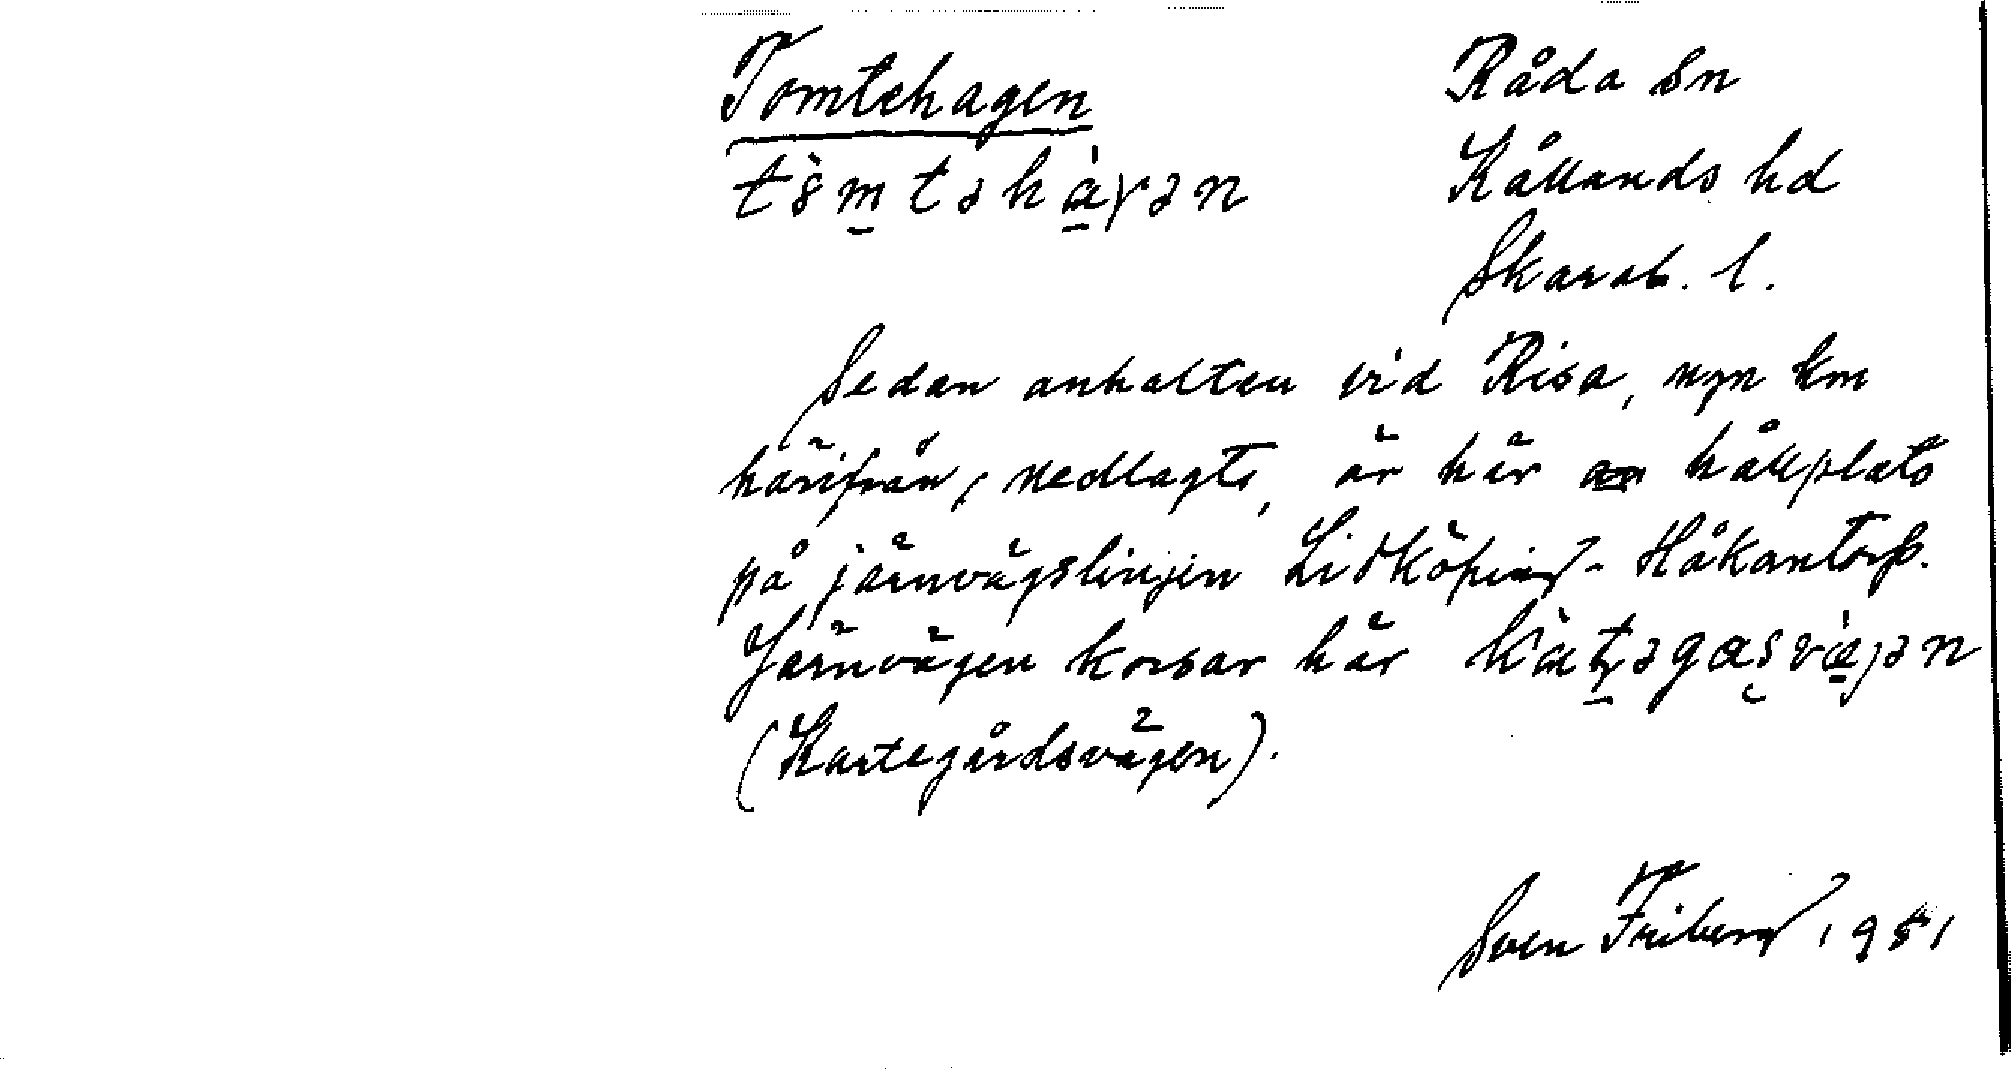 Tomtehagen
Råda sn
Kållands hd
Skarab. l.
Sedan anhalten vid Risa, ngn km
härifrån, nedlagts, är här hållplats
på järnvägslinjen Lidköping - Håkantorp.
Järnvägen korsar här
(Kartegårdsvägen).
Sven Friberg 1951